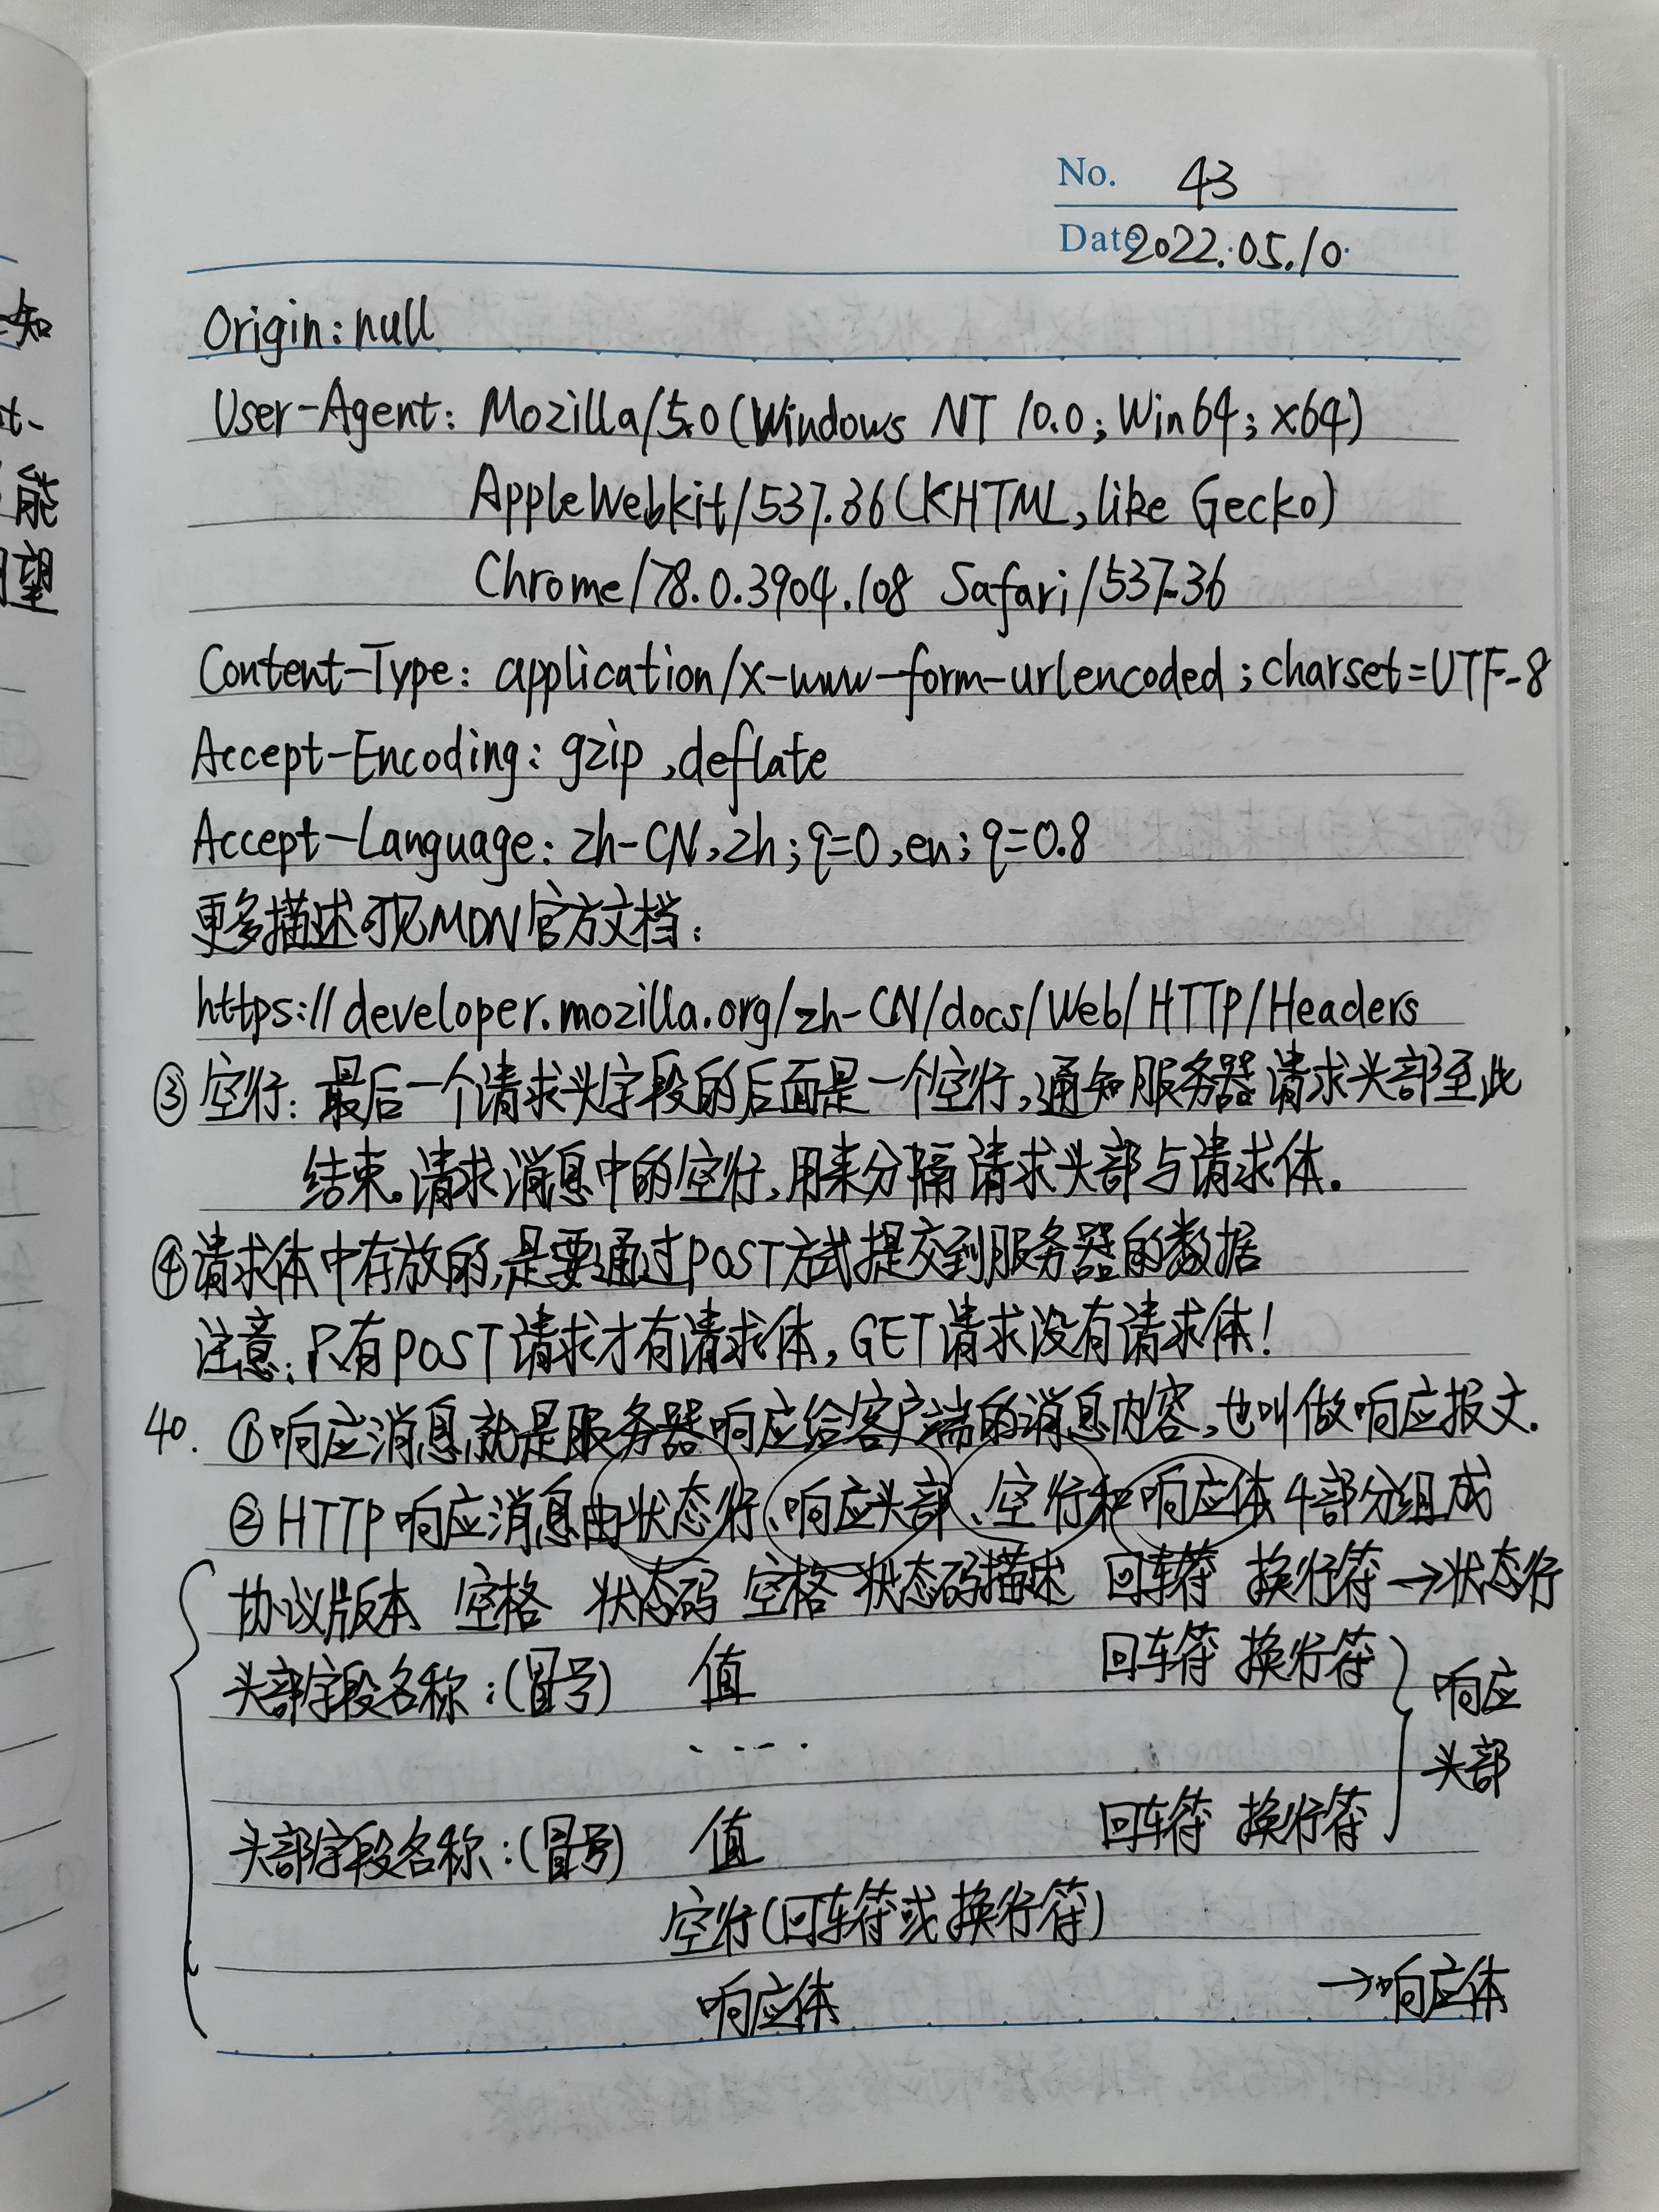 No. 43
Date 2022.05.10.
Origin: null
User-Agent: Mozilla/5.0 (Windows NT 10.0; Win64; x64)
AppleWebkit/537.36 (KHTML, like Gecko)
Chrome/78.0.3904.108 Safari/537.36
Content-Type: application/x-www-form-urlencoded; charset=UTF-8
Accept-Encoding: gzip, deflate
Accept-Language: zh-CN, zh; q=0, en; q=0.8
更多描述可见MDN官方文档:
https://developer.mozilla.org/zh-CN/docs/Web/HTTP/Headers
③ 空行: 最后一个请求头字段的后面是一个空行,通知服务器请求头部至此
结束。请求消息中的空行,用来分隔请求头部与请求体.
④请求体中存放的,是要通过POST方式提交到服务器的数据
注意:只有POST请求才有请求体,GET请求没有请求体!
40. ①响应消息就是服务器响应给客户端的消息内容,也叫做响应报文.
②HTTP响应消息由状态行、响应头部、空行和响应体4部分组成
协议版本 空格 状态码 空格 状态码描述 回车符 换行符→状态行
头部字段名称:(冒号) 值 回车符 换行符
响应
.....
头部
头部字段名称:(冒号) 值 回车符 换行符
空行(回车符或换行符)
响应体 →响应体
知
t-
能
望